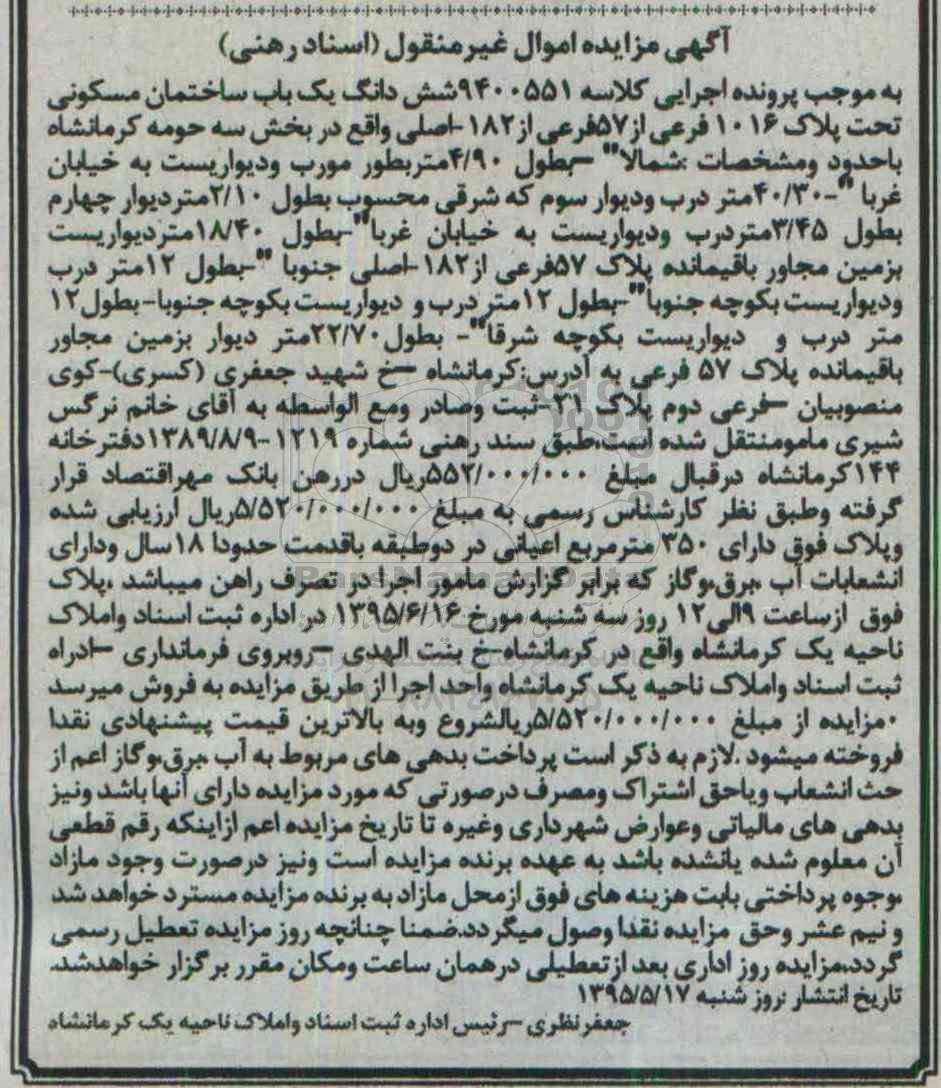 آگهی مزایده اموال غیرمنقول (اسناد رهنی)
به موجب پرونده اجرایی کلاسه ۹۴۰۰۵۵۱شش دانگ یک باب ساختمان مسکونی
تحت پلاک ۱۰۱۶ فرعی از۵۷فرعی از۱۸۲-اصلی واقع در بخش سه حومه کرمانشاه
باحدود ومشخصات :شمالا" –بطول ۴/۹۰متربطور مورب ودیواریست به خیابان
غربا "-۲۰/۳۰متر درب ودیوار سوم که شرقی محسوب بطول ۲/۱۰متردیوار چهارم
بطول ۳/۴۵متردرب ودیواریست به خیابان غربا"-بطول ۱۸/۴۰متردیواریست
بزمین مجاور باقیمانده پلاک ۵۷فرعی از۱۸۲-اصلی جنوبا "-بطول ۱۲متر درب
ودیواریست بکوچه جنوبا"-بطول ۱۲متر درب و دیواریست بکوچه جنوبا-بطول۱۲
متر درب و دیواریست بکوچه شرقا"- بطول۲۲/۷۰متر دیوار بزمین مجاور
باقیمانده پلاک ۵۷ فرعی به آدرس:کرمانشاه –خ شهید جعفری (کسری)-کوی
منصوبیان –فرعی دوم پلاک ۲۱-ثبت وصادر ومع الواسطه به آقای خانم نرگس
شیری مامومنتقل شده است،طبق سند رهنی شماره ۱۲۱۹-۱۳۸۹/۸/۹دفترخانه
۱۴۴کرمانشاه درقبال مبلغ ۵۵۲/۰۰۰/۰۰۰ریال دررهن بانک مهراقتصاد قرار
گرفته وطبق نظر کارشناس رسمی به مبلغ ۵/۵۲۰/۰۰۰/۰۰۰ریال ارزیابی شده
وپلاک فوق دارای ۳۵۰ مترمربع اعیانی در دوطبقه باقدمت حدودا ۱۸سال ودارای
انشعابات آب ،برق،وگاز که برابر گزارش مامور اجرا در تصرف راهن میباشد ،پلاک
فوق ازساعت ۹الی۱۲ روز سه شنبه مورخ ۱۳۹۵/۶/۱۶ در اداره ثبت اسناد واملاک
ناحیه یک کرمانشاه واقع در کرمانشاه-خ بنت الهدی –روبروی فرمانداری –ادراه
ثبت اسناد واملاک ناحیه یک کرمانشاه واحد اجرا از طریق مزایده به فروش میرسد
.مزایده از مبلغ ۵/۵۲۰/۰۰۰/۰۰۰ریالشروع وبه بالاترین قیمت پیشنهادی نقدا
فروخته میشود .لازم به ذکر است پرداخت بدهی های مربوط به آب ،برق،وگاز اعم از
حث انشعاب ویاحق اشتراک ومصرف درصورتی که مورد مزایده دارای آنها باشد ونیز
بدهی های مالیاتی وعوارض شهرداری وغیره تا تاریخ مزایده اعم ازاینکه رقم قطعی
آن معلوم شده یانشده باشد به عهده برنده مزایده است ونیز درصورت وجود مازاد
،وجوه پرداختی بابت هزینه های فوق ازمحل مازاد به برنده مزایده مسترد خواهد شد
و نیم عشر وحق مزایده نقدا وصول میگردد.ضمنا چنانچه روز مزایده تعطیل رسمی
گردد،مزایده روز اداری بعد ازتعطیلی درهمان ساعت ومکان مقرر برگزار خواهدشد.
تاریخ انتشار :روز شنبه ۱۳۹۵/۵/۱۷
جعفرنظری –رئیس اداره ثبت اسناد واملاک ناحیه یک کرمانشاه